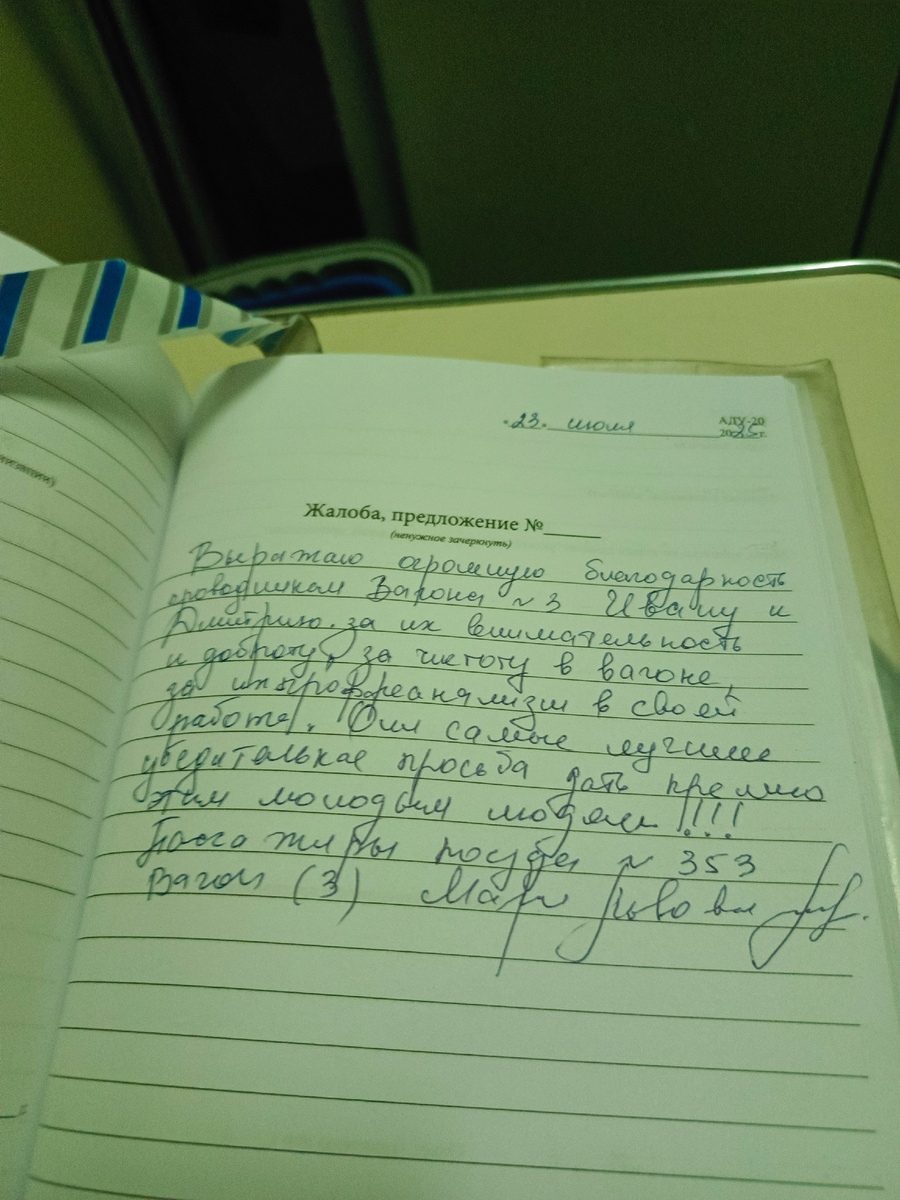 АДУ-20
"23" июля 2025 г.
Жалоба, предложение №
(ненужное зачеркнуть)
Выражаю огромную благодарность
проводникам Вагона №3 Ивану и
Дмитрию за их внимательность
и доброту, за чистоту в вагоне,
за в своей
работе. Они самые лучшие
убедительная просьба дать премию
этим молодым людям!!!!
Пассажиры поезда № 353
Вагон (3)